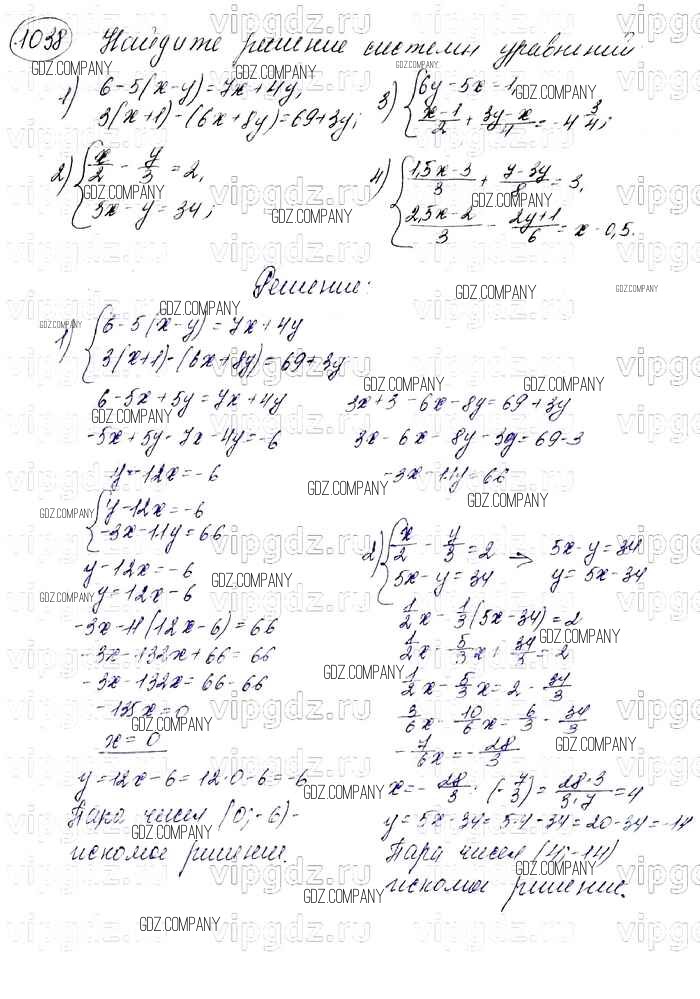 1038 Найдите решение системы уравнений
1) 6-5(x-y)=7x+4y,
3(x+1)-(6x+8y)=69+3y;
2) x/2 - y/3 = 2,
5x-y=34;
3) 6y-5x=1,
(x-1)/2 + (3y-x)/4 = -4 3/4;
4) (1,5x-3)/3 + (7-3y)/8 = 3,
(2,5x-2)/3 - (2y+1)/6 = x-0,5.
Решение:
1) 6-5(x-y)=7x+4y
3(x+1)-(6x+8y)=69+3y
6-5x+5y=7x+4y
-5x+5y-7x-4y=-6
y-12x=-6
3x+3-6x-8y=69+3y
3x-6x-8y-3y=69-3
-3x-11y=66
y-12x=-6
-3x-11y=66
y-12x=-6
y=12x-6
-3x-11(12x-6)=66
-3x-132x+66=66
-3x-132x=66-66
-135x=0
x=0
y=12x-6=12·0-6=-6
Пара чисел (0;-6)-
искомое решение.
2) x/2 - y/3 = 2 ⇒ 5x-y=34
5x-y=34 y=5x-34
1/2 x - 1/3 (5x-34)=2
1/2 x - 5/3 x + 34/3 = 2
1/2 x - 5/3 x = 2 - 34/3
3/6 x - 10/6 x = 6/3 - 34/3
-7/6 x = -28/3
x = -28/3 · (-7/3) = 28·3/3·7 = 4
y=5x-34=5·4-34=20-34=-14
Пара чисел (4;-14)
искомое решение.
vipgdz.ru
GDZ.COMPANY